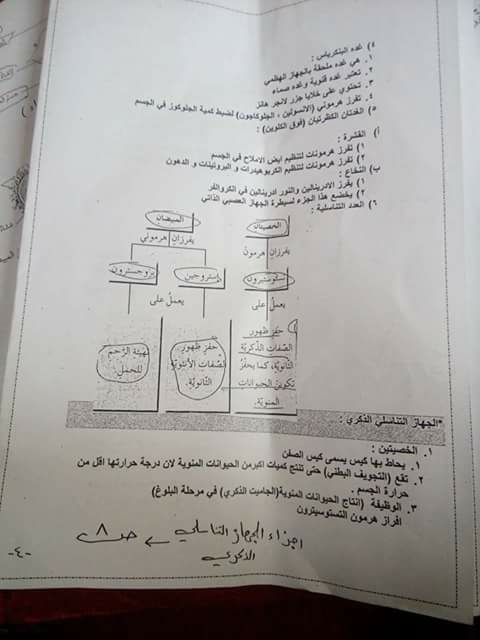 ٤) غده البنكرياس :
١. هي غده ملحقة بالجهاز الهضمي
٢. تعتبر غده قنوية وغده صماء
٣. تحتوي على خلايا جزر لانجر هانز
٤. تفرز هرموني (الانسولين ، الجلوكاجون) لضبط كمية الجلوكوز في الجسم
٥) الغدتان الكظريتان (فوق الكلوين) :
أ) القشرة :
١) تفرز هرمونات لتنظيم ايض الاملاح في الجسم
٢) تفرز هرمونات لتنظيم الكربوهيدرات و البروتينات و الدهون
ب) النخاع :
١) يفرز الادرينالين والنور ادرينالين في الكروافر
٢) يخضع هذا الجزء لسيطرة الجهاز العصبي الذاتي
٦) الغدد التناسلية :
الخصيتان
يفرزان هرمون
تستوستيرون
يعمل على
حفز ظهور
الصفات الذكرية
الثانوية، كما يحفز
تكوين الحيوانات
المنوية.
المبيضان
يفرزان هرموني
إستروجين
بروجسترون
يعمل على
حفز ظهور
الصفات الأنثوية
الثانوية.
تهيئة الرحم
للحمل.
*الجهاز التناسلي الذكري :
١. الخصيتين :
١. يحاط بها كيس يسمى كيس الصفن
٢. تقع (التجويف البطني) حتى تنتج كميات اكبرمن الحيوانات المنوية لان درجة حرارتها اقل من
حرارة الجسم .
٣. الوظيفة (انتاج الحيوانات المنوية(الجاميت الذكري) في مرحلة البلوغ)
افراز هرمون التستوسيترون
اجزاء الجهاز التناسلي ← ص ٨
الذكري
-٤-